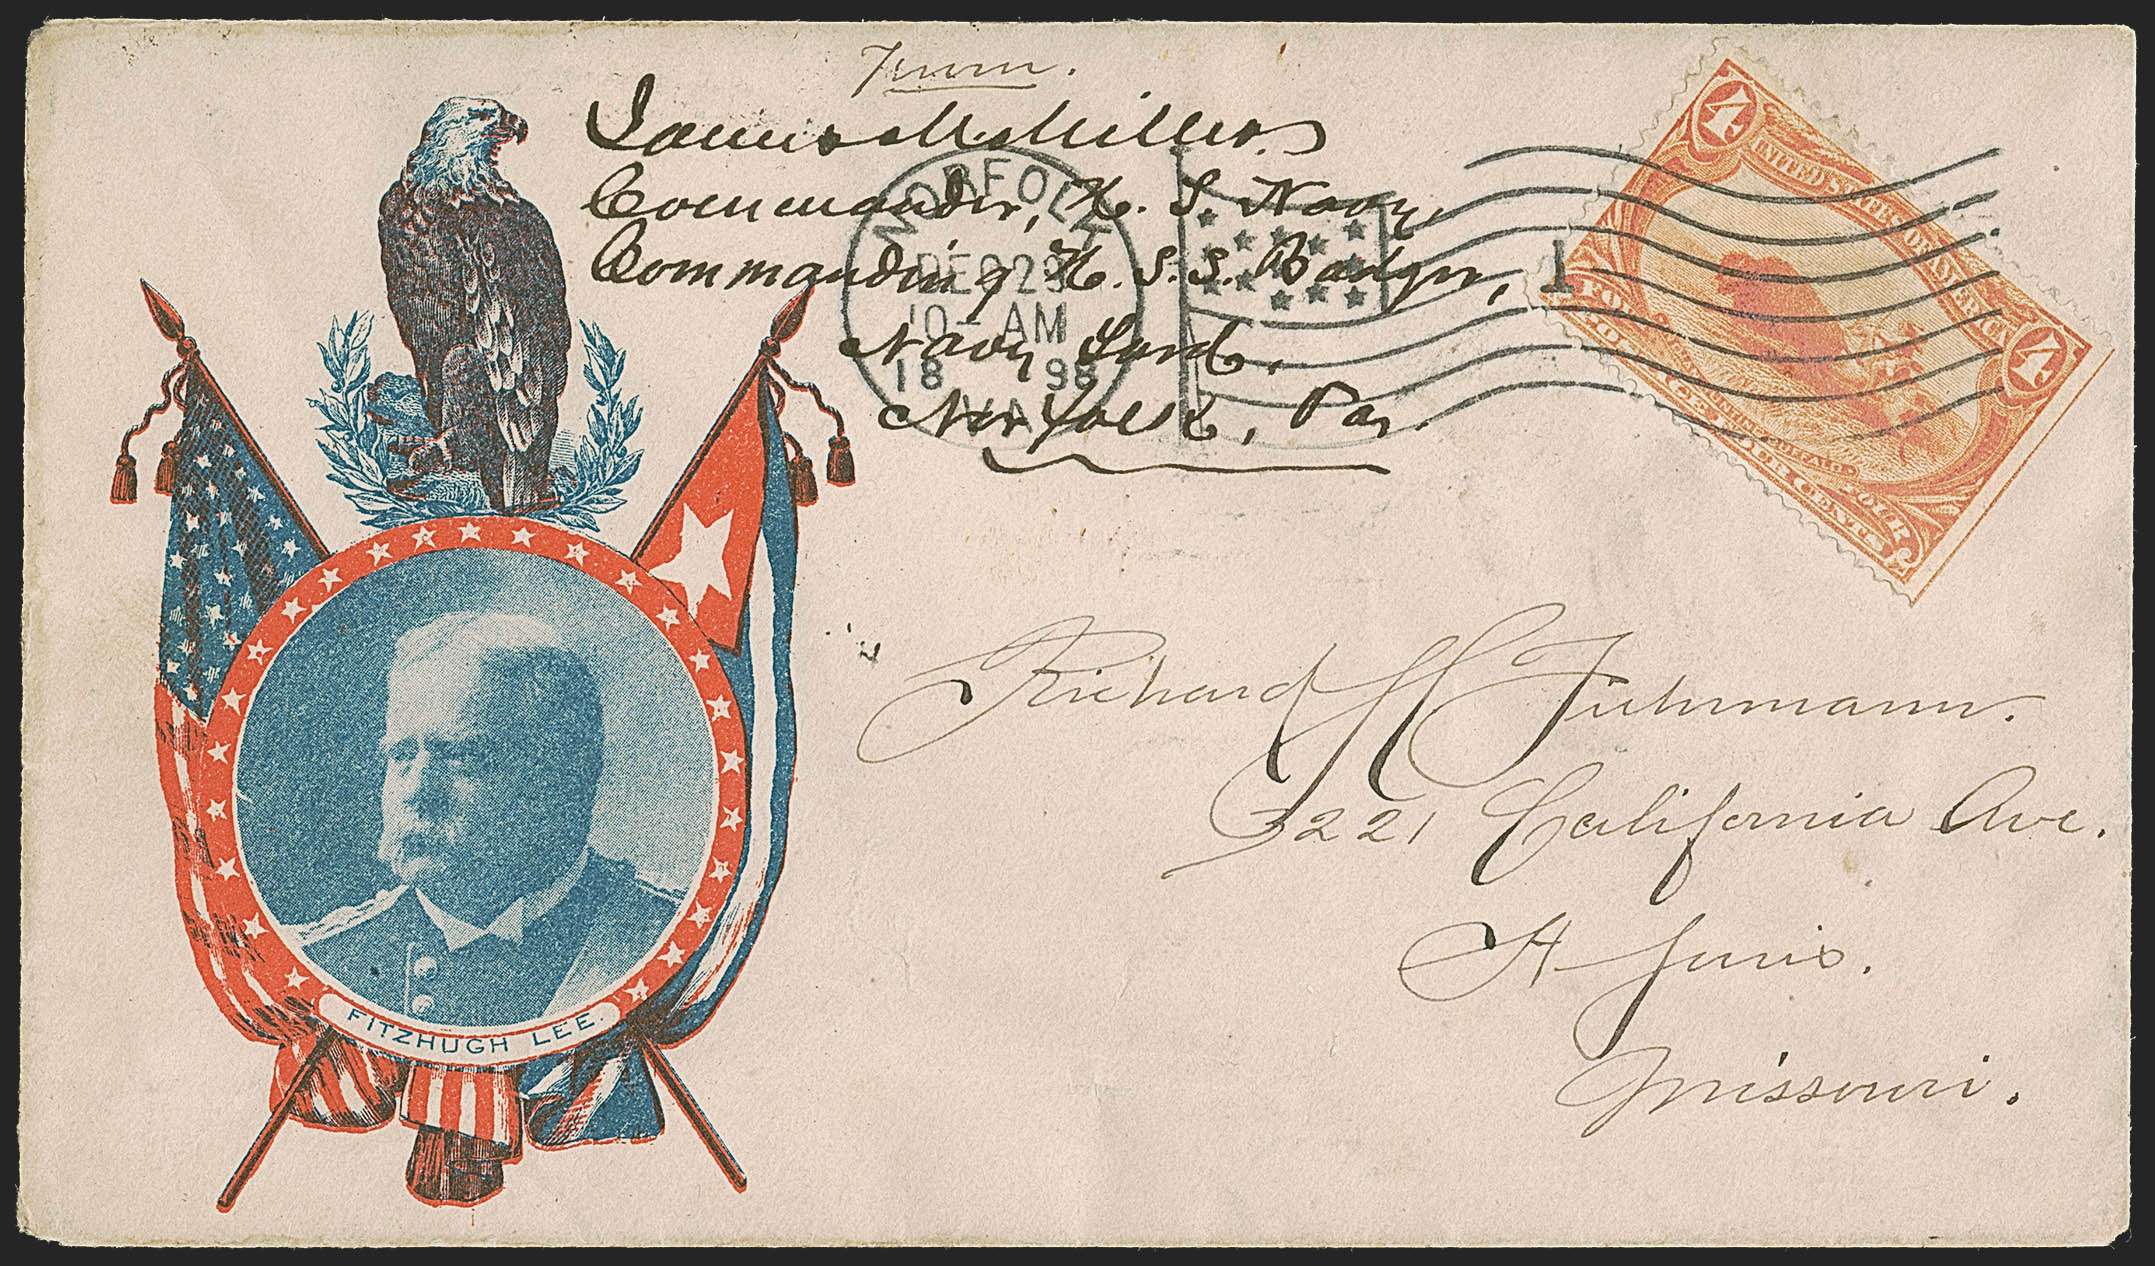 From.
James M. Miller
Commander, U. S. Navy,
Commanding U. S. S. Badger,
Navy Yard,
Norfolk, Va.
NORFOLK
DEC 29
10 - AM
1898
VA.
1
4
UNITED STATES OF AMERICA
4
INDIAN HUNTING BUFFALO.
FOUR CENTS
Richard H Fuhrmann.
3221 California Ave.
St Louis.
Missouri.
FITZHUGH LEE.